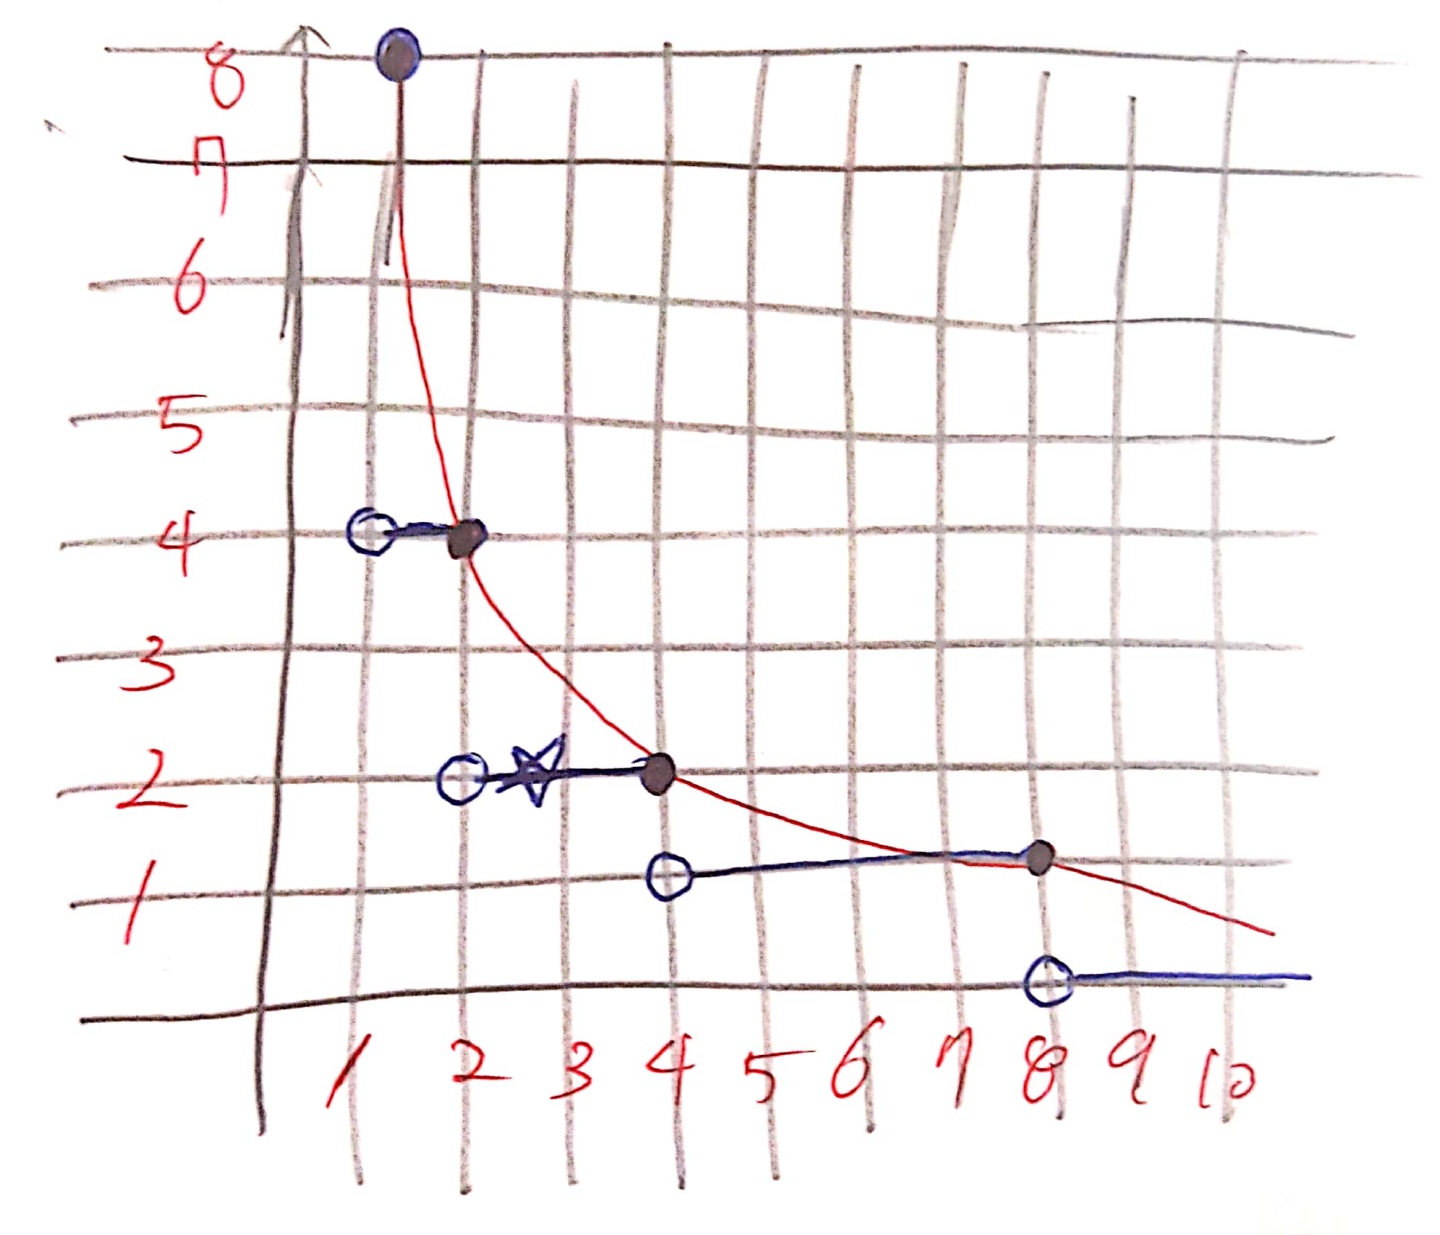 8
7
6
5
4
3
2
1
1 2 3 4 5 6 7 8 9 10